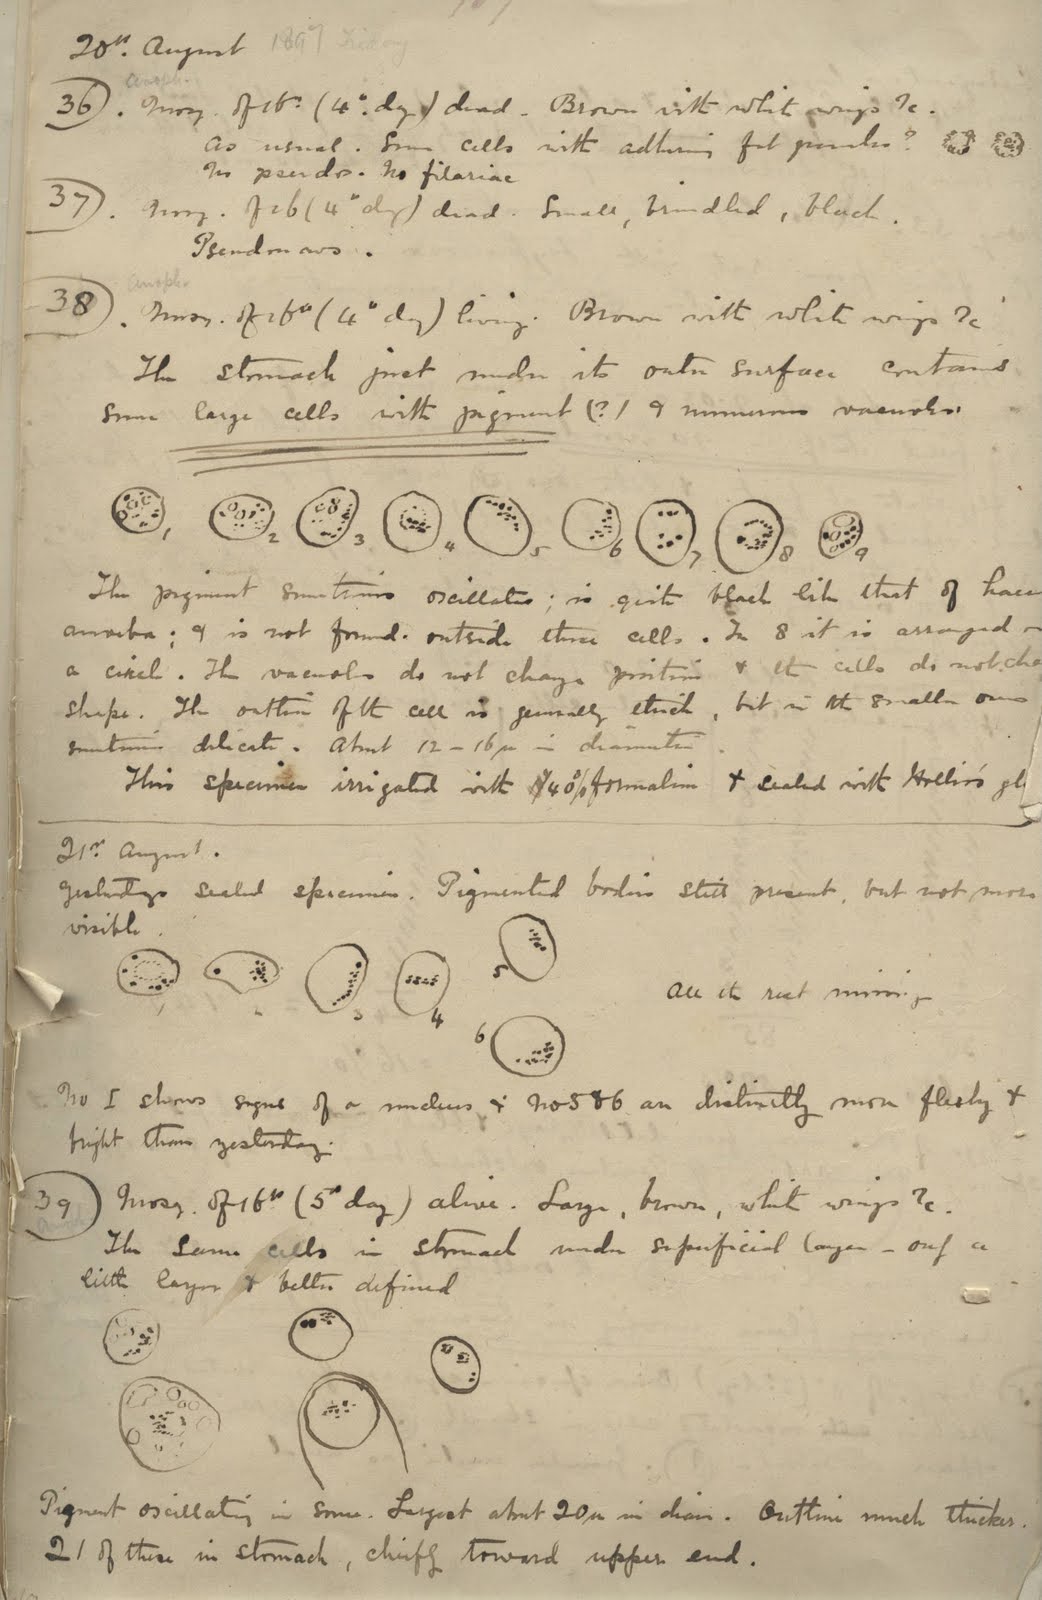 20th. August 1897 Friday
Anoph.
36. Mosq. of 16th (4th. day) dead. Brown with white wings &c.
As usual. Some cells with adhering fat granules?
No pseudos. No filariae
37. Mosq. of 16 (4th day) dead. Small, brindled, black.
Pseudonavs.
Anoph.
38. Mosq. of 16th (4th day) living. Brown with white wings &c
The stomach just under its outer surface contains
some large cells with pigment (?) & numerous vacuoles.
1 2 3 4 5 6 7 8 9
The pigment sometimes oscillates; is quite black like that of haem
amoeba; & is not found outside these cells. In 8 it is arranged
a circle. The vacuoles do not change position & the cells do not cha
shape. The outline of the cell is generally thick, but in the smaller ones
sometimes delicate. About 12-16µ in diameter.
This specimen irrigated with 40% formalin & sealed with Hollis's gl
21st August.
Yesterdays sealed specimen. Pigmented bodies still present, but not more
visible.
1 2 3 4 5
All the rest missing
6
No 1 shows signs of a nucleus & No 5 & 6 are distinctly more fleshy &
bright than yesterday.
39 Mosq. of 16th (5th day) alive. Large, brown, white wings &c.
The same cells in stomach under superficial layer - only a
little larger & better defined
Pigment oscillating in some. Largest about 20µ in diam. Outline much thicker.
21 of these in stomach, chiefly toward upper end.